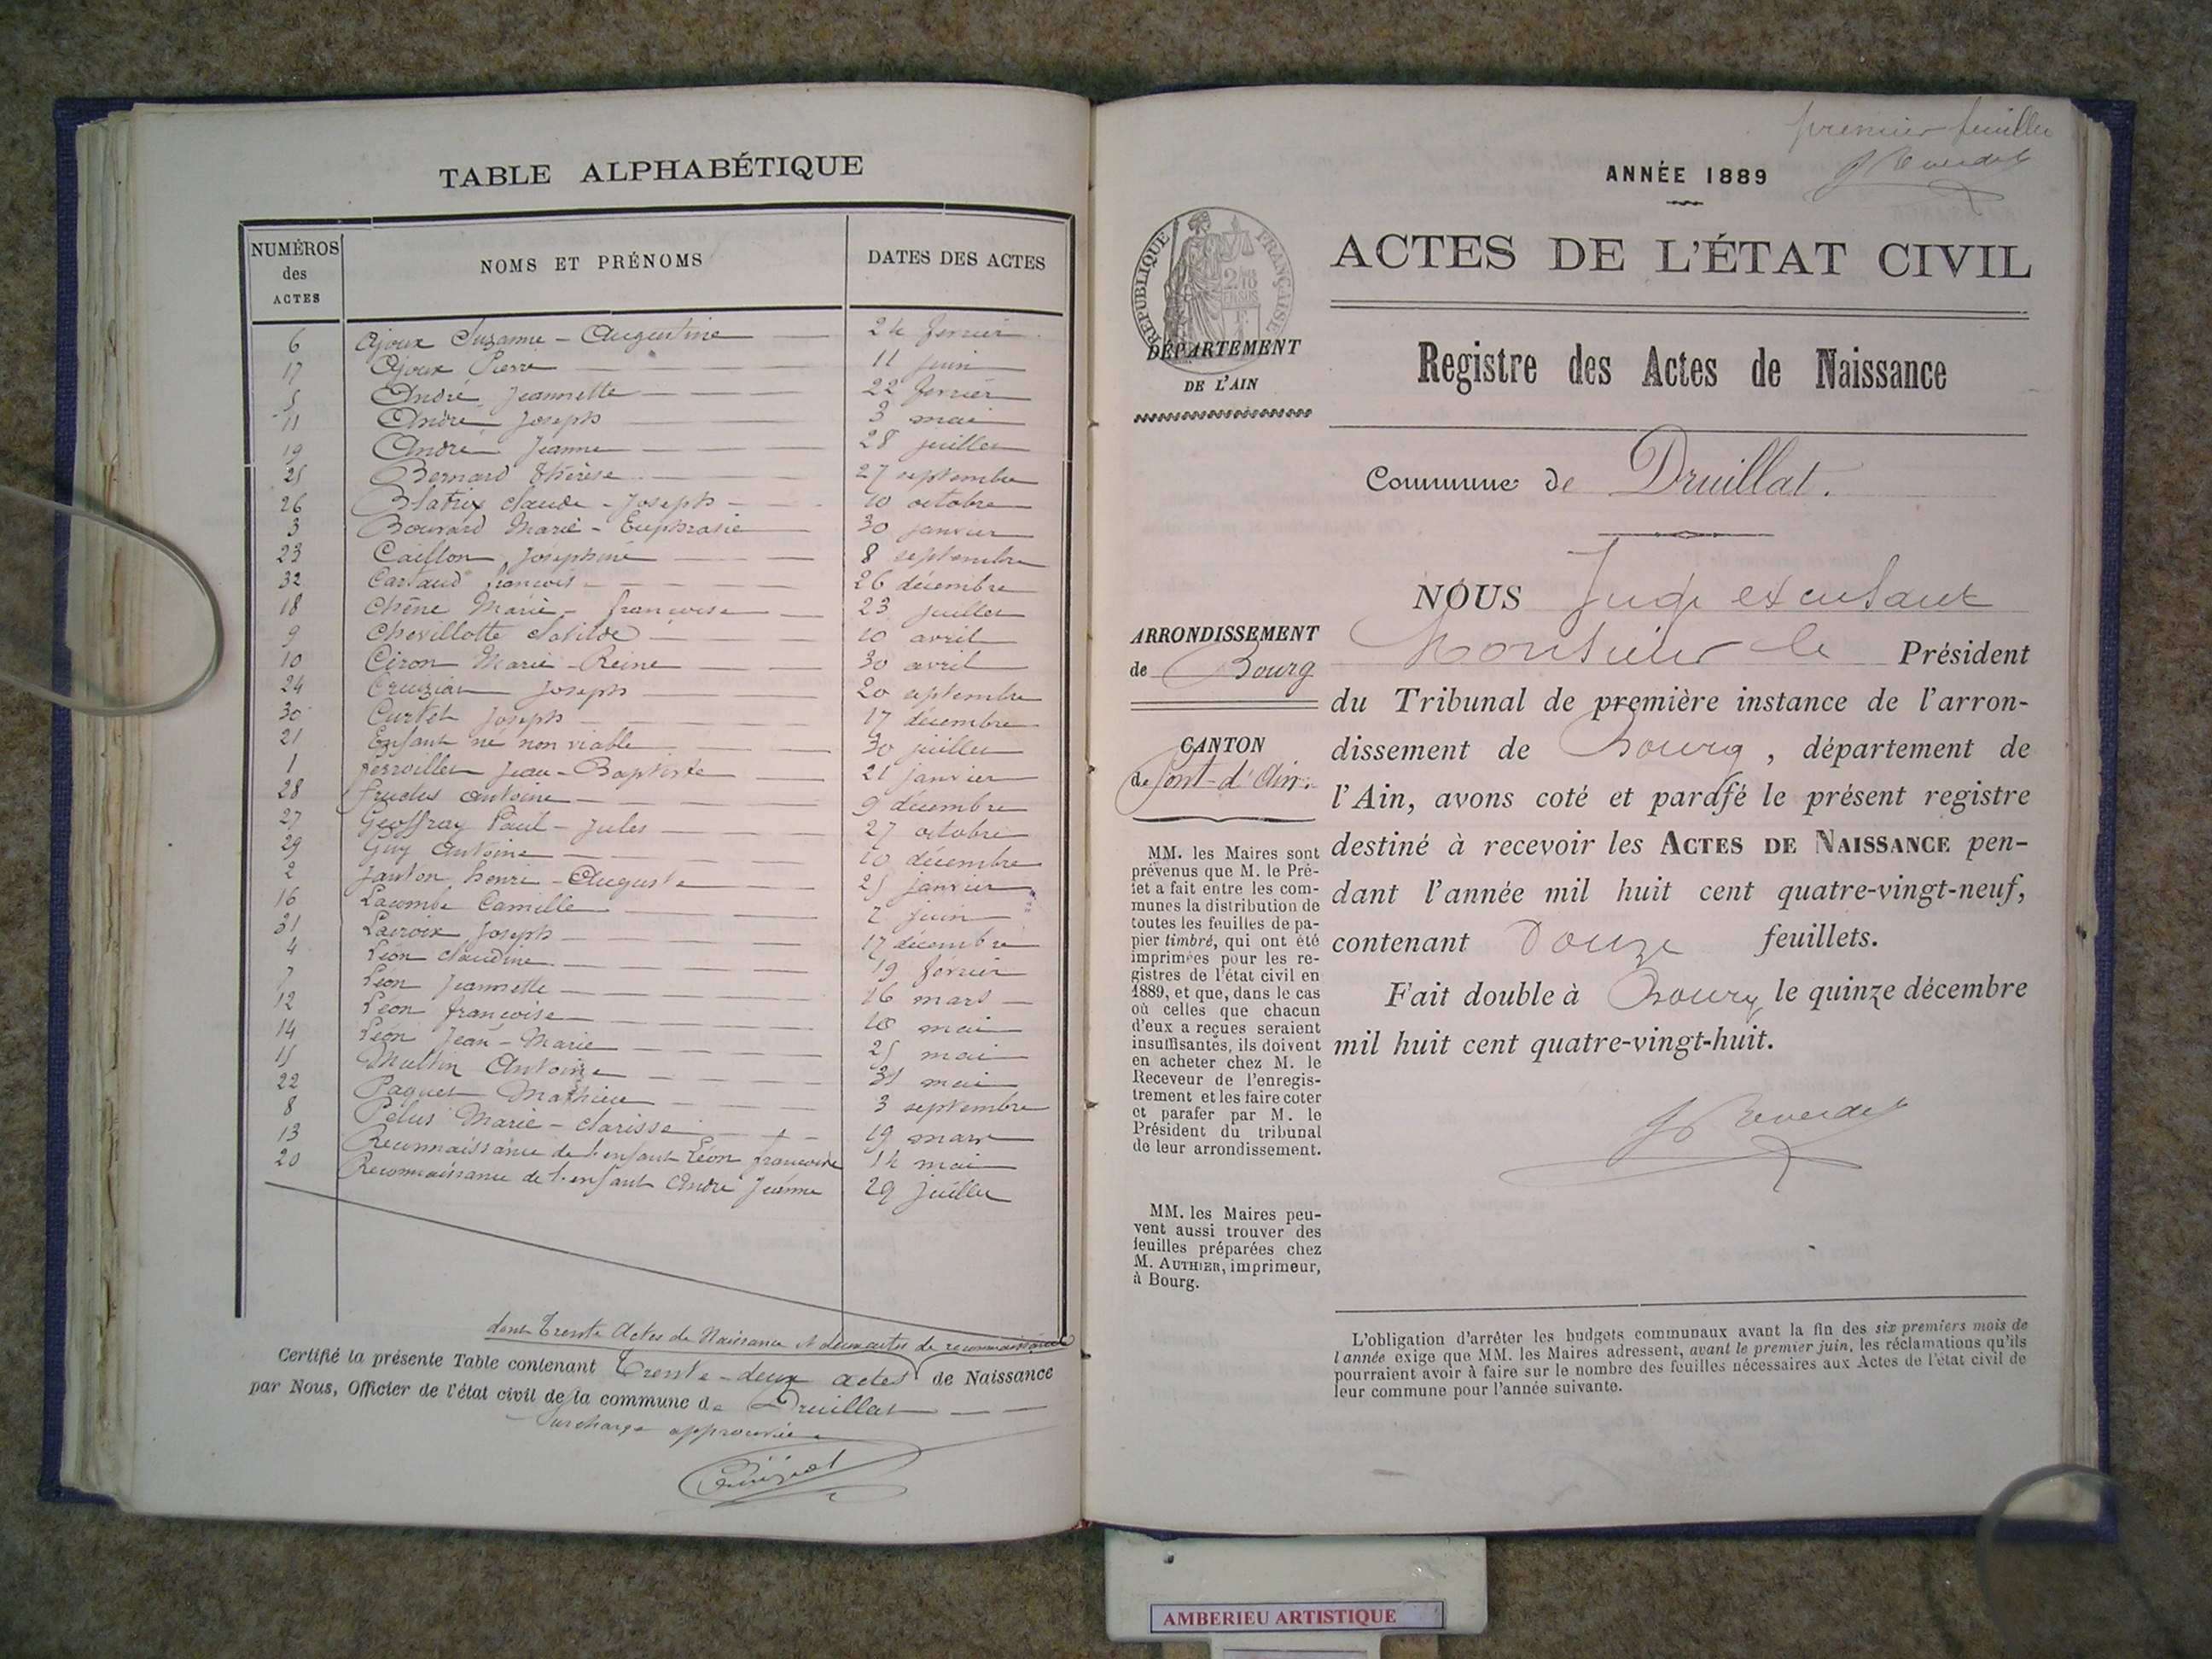 TABLE ALPHABÉTIQUE
NUMÉROS des ACTES NOMS ET PRÉNOMS DATES DES ACTES
6 Ajoux Suzanne - Augustine 24 février
17 Ajoux Pierre 11 juin
5 André Jeannette 22 février
11 André Joseph 3 mai
19 André Jeanne 28 juillet
25 Bernard Thérèse 27 septembre
26 Blatrix Claude - Joseph 10 octobre
3 Bouvard Marie - Euphrasie 30 janvier
23 Caillon Josephine 8 septembre
32 Cartaud François 26 décembre
18 Chêne Marie - françoise 23 juillet
9 Chevillotte Clotilde 10 avril
10 Ciron Marie - Reine 30 avril
24 Joseph 20 septembre
30 Curtet Joseph 17 décembre
21 Enfant né non viable 30 juillet
1 Jean - Baptiste 21 janvier
28 Antoine 9 décembre
27 Geoffray Paul - Jules 27 octobre
29 Guy Antoine 10 décembre
2 Janton henri - Auguste 25 janvier
16 Lacombe Camille 2 juin
31 Lacroix Joseph 17 décembre
4 Léon Claudine 19 février
7 Léon Jeannette 16 mars
12 Léon françoise 10 mai
14 Léon Jean - Marie 25 mai
15 Multin Antoine 31 mai
22 Paquet Mathieu 3 septembre
8 Pelus Marie - Clarisse 19 mars
13 Reconnaissance de l'enfant Léon françoise 14 mai
20 Reconnaissance de l'enfant André Jeanne 29 juillet
dont trente Actes de Naissance et deux actes de reconnaissance
Certifié la présente Table contenant Trente-deux actes de Naissance
par Nous, Officier de l'état civil de la commune de Druillat
Surcharge approuvée
premier feuillet
ANNÉE 1889
RÉPUBLIQUE FRANÇAISE
ACTES DE L'ÉTAT CIVIL
DÉPARTEMENT
DE L'AIN
Registre des Actes de Naissance
Commune de Druillat.
NOUS Juge excusant
Monsieur le Président
du Tribunal de première instance de l'arron-
dissement de Bourg, département de
l'Ain, avons coté et parafé le présent registre
destiné à recevoir les ACTES DE NAISSANCE pen-
dant l'année mil huit cent quatre-vingt-neuf,
contenant Douze feuillets.
Fait double à Bourg le quinze décembre
mil huit cent quatre-vingt-huit.
ARRONDISSEMENT
de Bourg
CANTON
de Pont-d'Ain.
MM. les Maires sont
prévenus que M. le Pré-
fet a fait entre les com-
munes la distribution de
toutes les feuilles de pa-
pier timbré, qui ont été
imprimées pour les re-
gistres de l'état civil en
1889, et que, dans le cas
où celles que chacun
d'eux a reçues seraient
insuffisantes, ils doivent
en acheter chez M. le
Receveur de l'enregis-
trement et les faire coter
et parafer par M. le
Président du tribunal
de leur arrondissement.
MM. les Maires peu-
vent aussi trouver des
feuilles préparées chez
M. AUTHIER, imprimeur,
à Bourg.
L'obligation d'arrêter les budgets communaux avant la fin des six premiers mois de
l'année exige que MM. les Maires adressent, avant le premier juin, les réclamations qu'ils
pourraient avoir à faire sur le nombre des feuilles nécessaires aux Actes de l'état civil de
leur commune pour l'année suivante.
AMBERIEU ARTISTIQUE